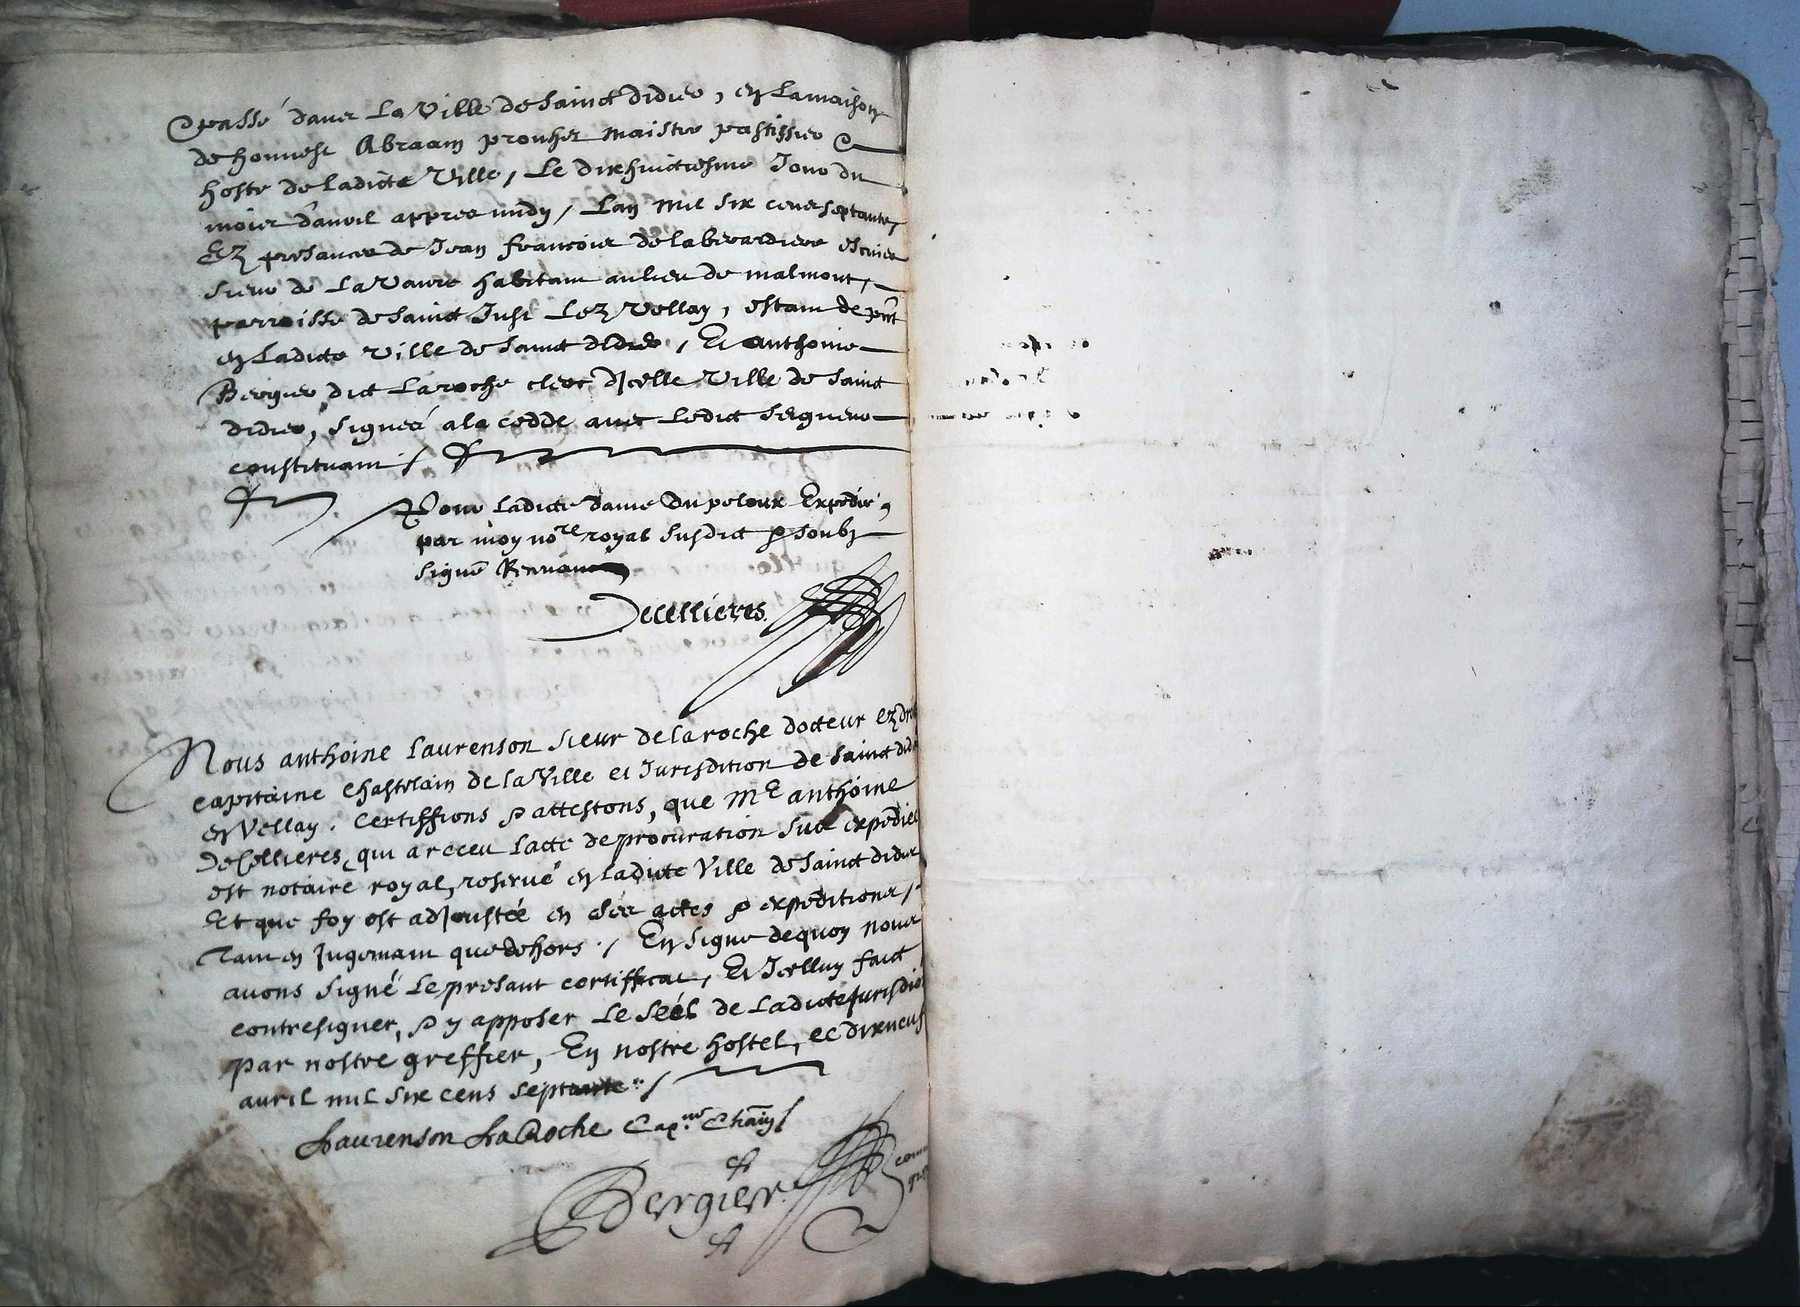 passé dans la ville de Sainct Didier, en la maison
de honneste Abraam prouhet maistre pastissier &
hoste de ladicte ville, le dixhuictiesme jour du
mois d'avril appres midy, l'an mil six cens septante,
Ez presances de Jean françois de la berardiere escuier
sieur de la Vaure habitant au lieu de malmont,
parroisse de Sainct Just lez Vellay, estant de pnt
en ladicte ville de Sainct didier, Et anthoine
Bergier dict Laroche clerc d'jcelle ville de Sainct
didier, signés a la cedde avec ledict seigneur
constituant /
Pour ladicte dame du peloux Expédié
par moy nore royal susdict & soubz
signé
Decellieres
Nous anthoine Laurenson sieur de la roche docteur ez
capitaine chastelain de la ville et jurisdition de Sainct
en Vellay, certiffions & attestons, que Me anthoine
DeCellieres, qui a receu lacte de procuration sus expedié
est notaire royal, reservé en ladicte ville de Sainct didier
et que foy est adjoustée en ses actes & expeditions,
tant en jugemant que dehors, / En signe de quoy nous
avons signé le presant certifficat, Et jcelluy faict
contresigner, & y apposer le séel de ladicte
par nostre greffier, En nostre hostel, ce
avril mil six cens septante /
Laurenson LaRoche Capne
Bergier